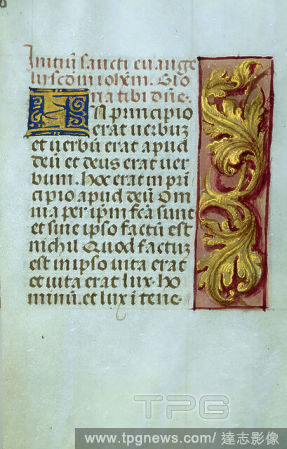 Initiu sancti euange
lij scdm iohem. Glo
ria tibi dne.
In principio
erat uerbuz
et uerbu erat apud
deu et deus erat uer
bum. Hoc erat in pri
cipio apud deu Om
nia per ipm fca sunt
et sine ipso factu est
nichil Quod factuz
est in ipso uita erat
et uita erat lux ho
minu. et lux i tene-
TPG
www.tpgnews.com/達志影像